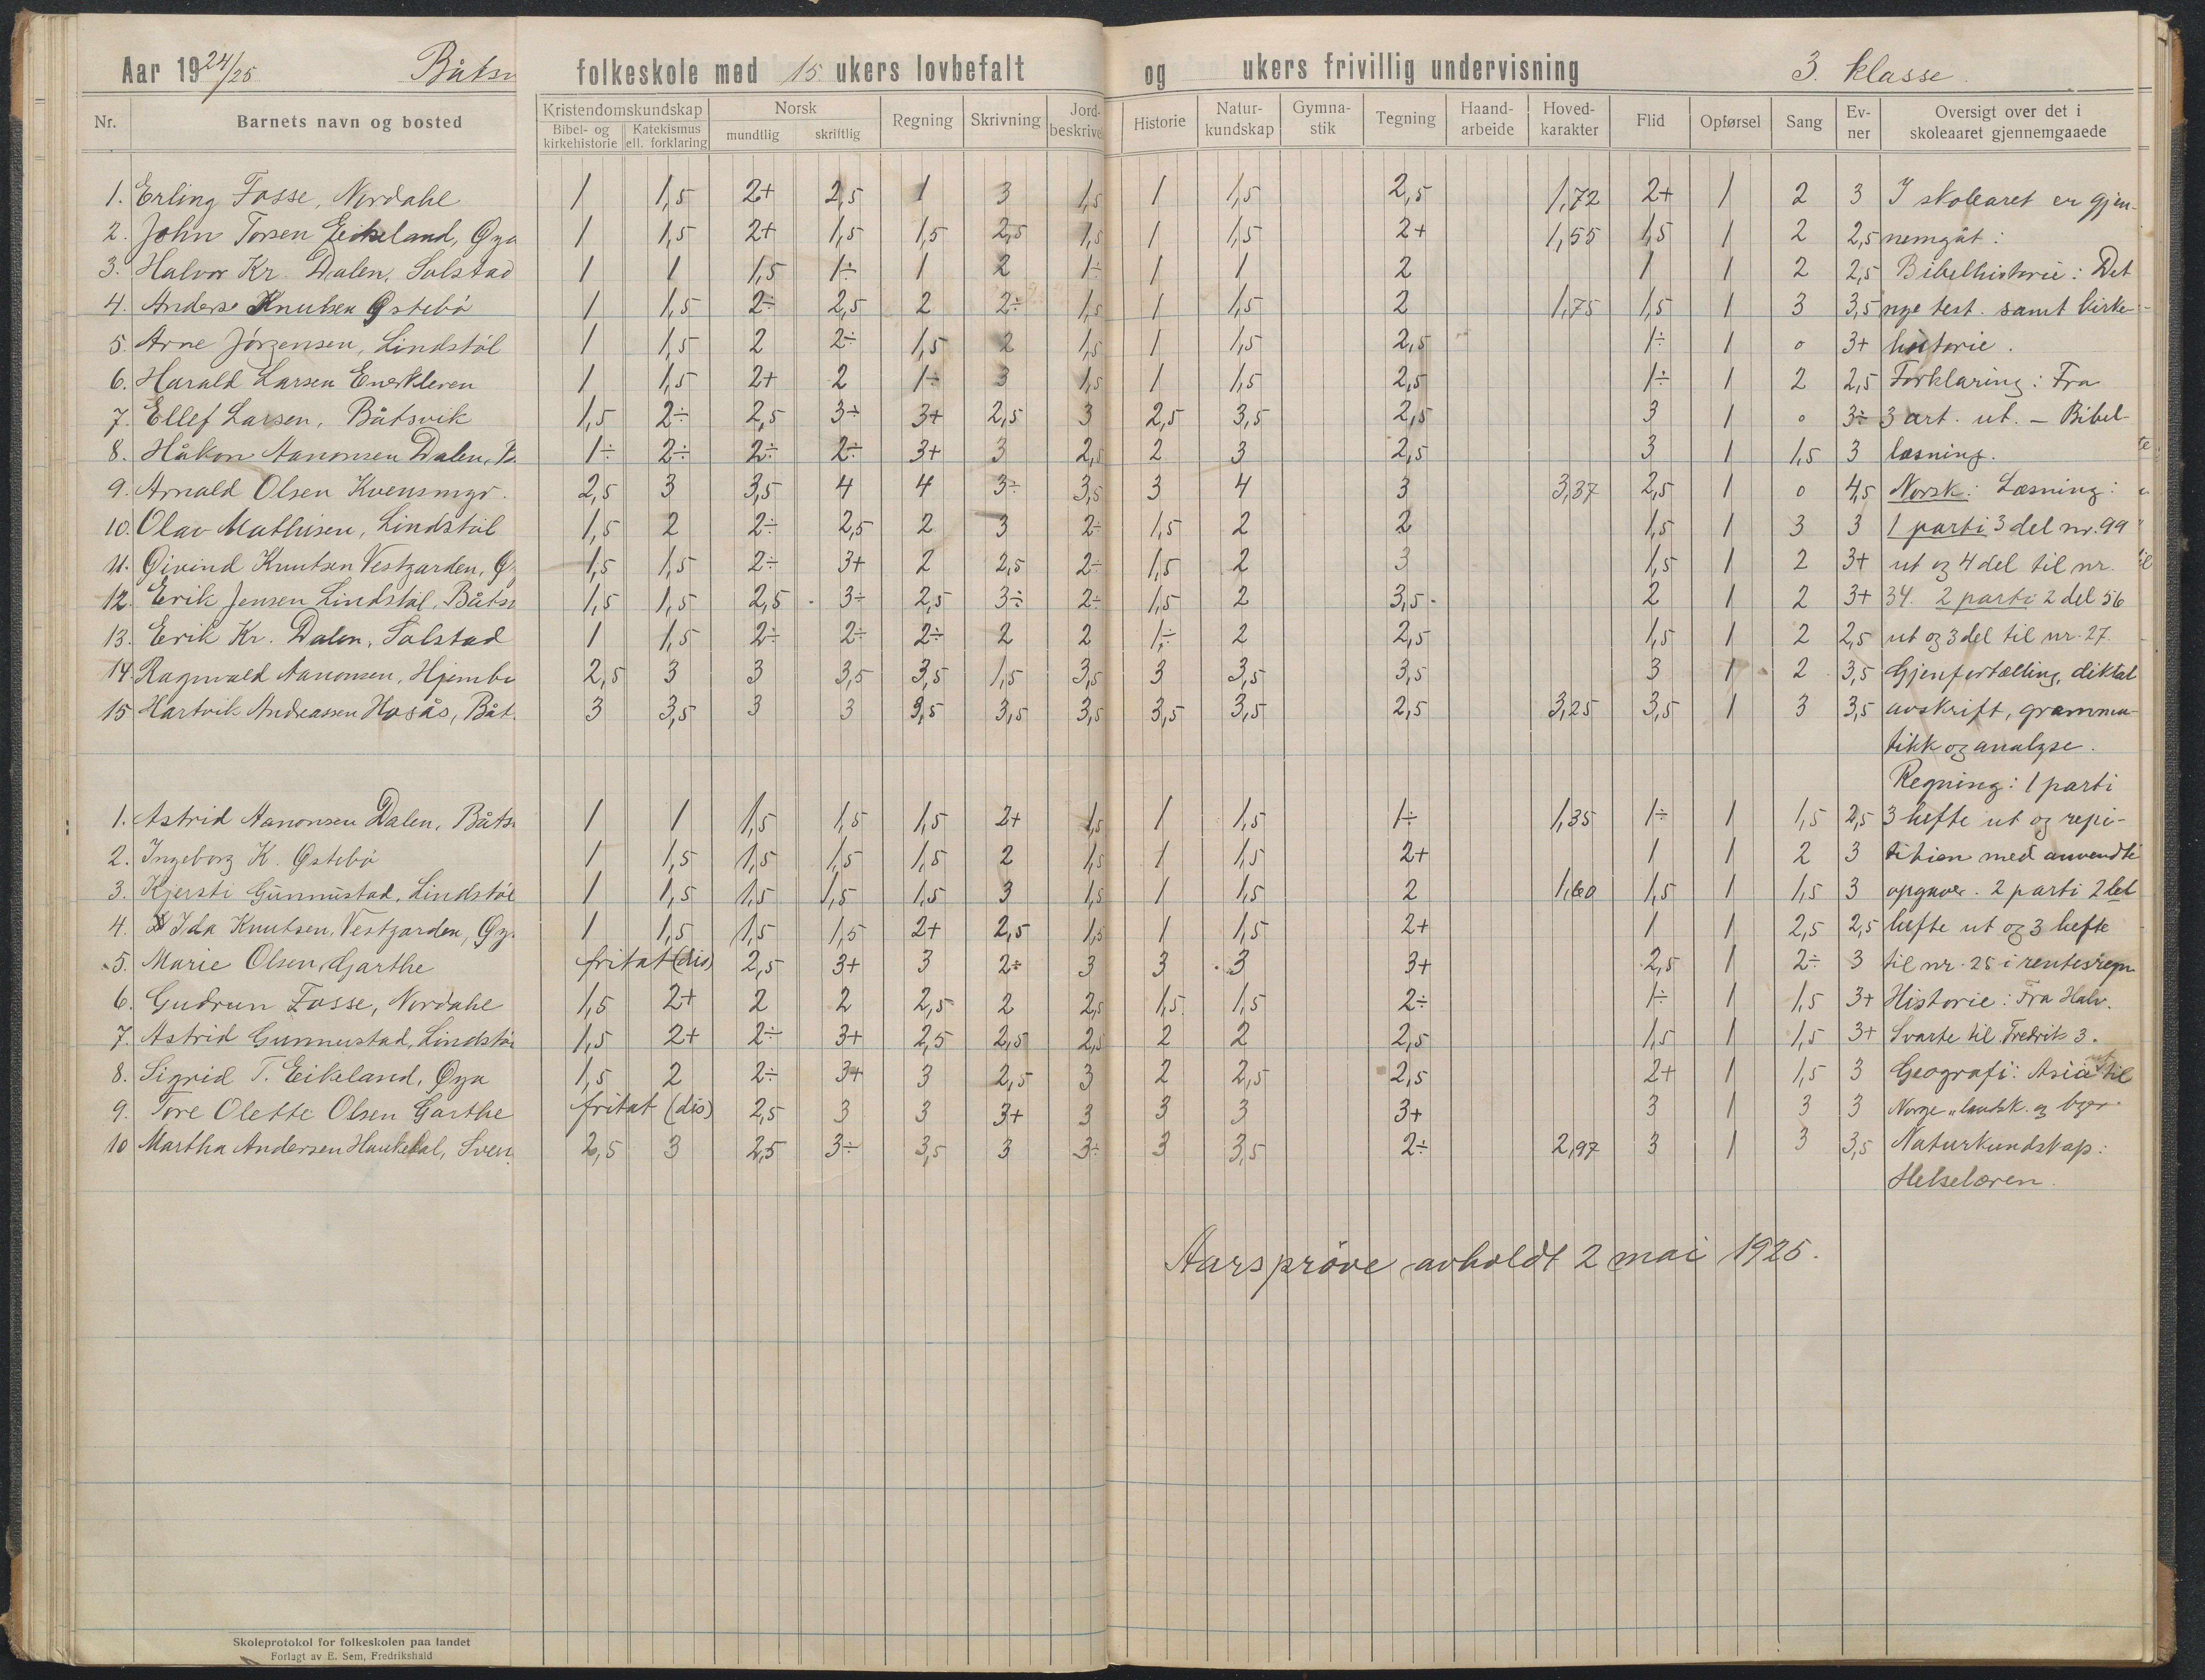 Aar 1924/25 Båtsv folkeskole med 15 ukers lovbefalt og ukers frivillig undervisning 3. klasse.
Nr. Barnets navn og bosted Kristendomskundskap Norsk Regning Skrivning Jord-beskrivel Historie Natur-kundskap Gymna-stik Tegning Haand-arbeide Hoved-karakter Flid Opførsel Sang Ev-ner Oversigt over det i skoleaaret gjennemgaaede
Bibel- og kirkehistorie Katekismus ell. forklaring mundtlig skriftlig
1. Erling Fosse, Nordahl 1 1,5 2+ 2,5 1 3 1,5 1 1,5 2,5 1,72 2+ 1 2 3 I skolearet er gjen-
2. John Torsen Eikeland, Øya 1 1,5 2+ 1,5 1,5 2,5 1,5 1 1,5 2+ 1,55 1,5 1 2 2,5 nemgåt:
3. Halvor Kr. Dalen, Solstad 1 1 1,5 1÷ 1 2 1÷ 1 1 2 1 1 2 2,5 Bibelhistorie: Det
4. Anders Knutsen Østebö 1 1,5 2÷ 2,5 2 2÷ 1,5 1 1,5 2 1,75 1,5 1 3 3,5 nye test. samt kirke-
5. Arne Jörgensen, Lindstöl 1 1,5 2 2÷ 1,5 2 1,5 1 1,5 2,5 1÷ 1 0 3+ historie.
6. Harald Larsen Enerkleven 1 1,5 2+ 2 1÷ 3 1,5 1 1,5 2,5 1÷ 1 2 2,5 Forklaring: Fra
7. Ellef Larsen, Båtsvik 1,5 2÷ 2,5 3÷ 3+ 2,5 3 2,5 3,5 2,5 3 1 0 3÷ 3 art. ut. – Bibel-
8. Håkon Aanonsen Dalen, B. 1÷ 2÷ 2÷ 2÷ 3+ 3 2,5 2 3 2,5 3 1 1,5 3 læsning.
9. Arnald Olsen Kvensmyr. 2,5 3 3,5 4 4 3÷ 3,5 3 4 3 3,37 2,5 1 0 4,5 Norsk: Læsning:
10. Olav Mathisen, Lindstöl 1,5 2 2÷ 2,5 2 3 2÷ 1,5 2 2 1,5 1 3 3 1 parti 3 del nr. 99
11. Öivind Knutsen Vestgarden, Ö 1,5 1,5 2÷ 3+ 2 2,5 2÷ 1,5 2 3 1,5 1 2 3+ ut og 4 del til nr.
12. Erik Jensen Lindstöl, Båtsv 1,5 1,5 2,5 3÷ 2,5 3÷ 2÷ 1,5 2 3,5 2 1 2 3+ 34. 2 parti 2 del 56
13. Erik Kr. Dalen, Solstad 1 1,5 2÷ 2÷ 2÷ 2 2 1÷ 2 2,5 1,5 1 2 2,5 ut og 3 del til nr. 27.
14. Ragnvald Aanonsen, Hjembu 2,5 3 3 3,5 3,5 1,5 3,5 3 3,5 3,5 3 1 2 3,5 Gjenfortælling, diktat
15 Hartvik Andreassen Hosås, Båt. 3 3,5 3 3 3,5 3,5 3,5 3,5 3,5 2,5 3,25 3,5 1 3 3,5 avskrift, gramma-
tikk og analyse.
Regning: 1 parti
1. Astrid Aanonsen Dalen, Båts 1 1 1,5 1,5 1,5 2+ 1,5 1 1,5 1÷ 1,35 1÷ 1 1,5 2,5 3 hefte ut og repi-
2. Ingeborg K. Østebö 1 1,5 1,5 1,5 1,5 2 1,5 1 1,5 2+ 1 1 2 3 tition med anvendte
3. Kjersti Gunnustad, Lindstöl 1 1,5 1,5 1,5 1,5 3 1,5 1 1,5 2 1,60 1,5 1 1,5 3 opgaver. 2 parti 2det
4. Ida Knutsen, Vestgarden, Öy. 1 1,5 1,5 1,5 2+ 2,5 1,5 1 1,5 2+ 1 1 2,5 2,5 hefte ut og 3 hefte
5. Marie Olsen, Garthe fritat (dis) 2,5 3+ 3 2÷ 3 3 3 3+ 2,5 1 2÷ 3 til nr. 25 i rentesregn
6. Gudrun Fosse, Nordahl 1,5 2+ 2 2 2,5 2 2,5 1,5 1,5 2÷ 1÷ 1 1,5 3+ Historie: Fra Halv.
7. Astrid Gunnustad, Lindstöl 1,5 2+ 2÷ 3+ 2,5 2,5 2,5 2 2 2,5 1,5 1 1,5 3+ Svarte til Fredrik 3.
8. Sigrid T. Eikeland, Øya 1,5 2 2÷ 3+ 3 2,5 3 2 2,5 2,5 2+ 1 1,5 3 Geografi: Asia ut til
9. Tore Olette Olsen Garthe fritat (dis) 2,5 3 3 3+ 3 3 3 3+ 3 1 3 3 Norge „landsk. og byer.
10 Martha Andersen Haukedal, Sven. 2,5 3 2,5 3÷ 3,5 3 3÷ 3 3,5 2÷ 2,97 3 1 3 3,5 Naturkundskap:
Helselæren.
Aarspröve avholdt 2 mai 1925.
Skoleprotokol for folkeskolen paa landet
Forlagt av E. Sem, Fredrikshald